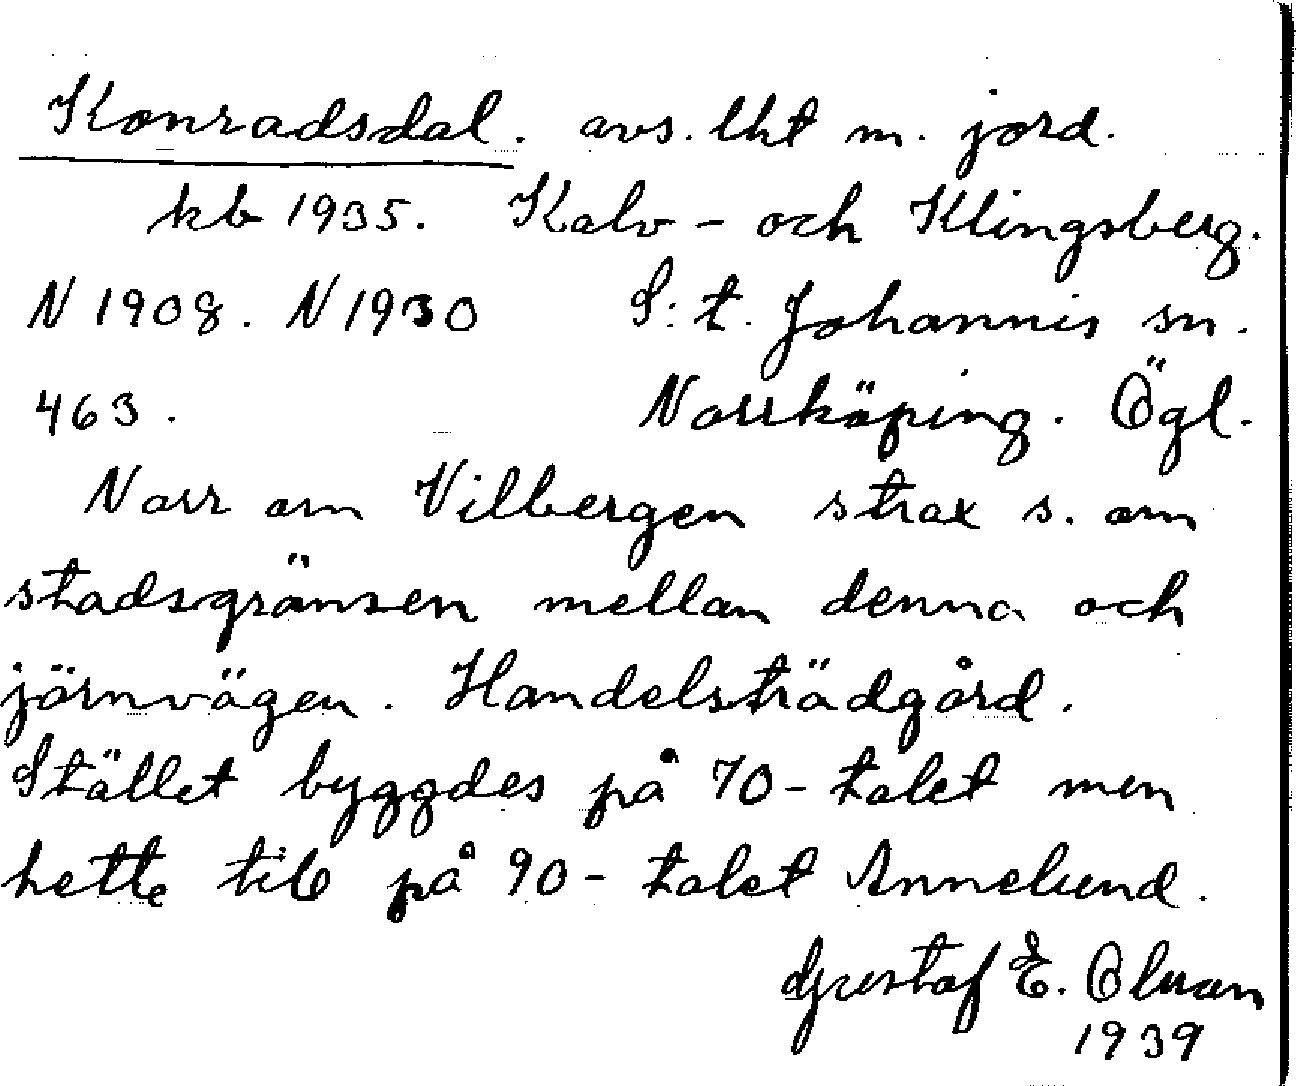 Konradsdal. avs. lht m. jord.
kb 1935. Kalv- och Klingsberg.
N 1908. N 1930 S:t. Johannis sn.
463. Norrköping. Ögl.
Norr om Vilbergen strax s. om
stadsgränsen mellan denna och
järnvägen. Handelsträdgård.
Stället byggdes på 70-talet men
hette till på 90-talet Annelund.
Gustaf E. Olsson
1939